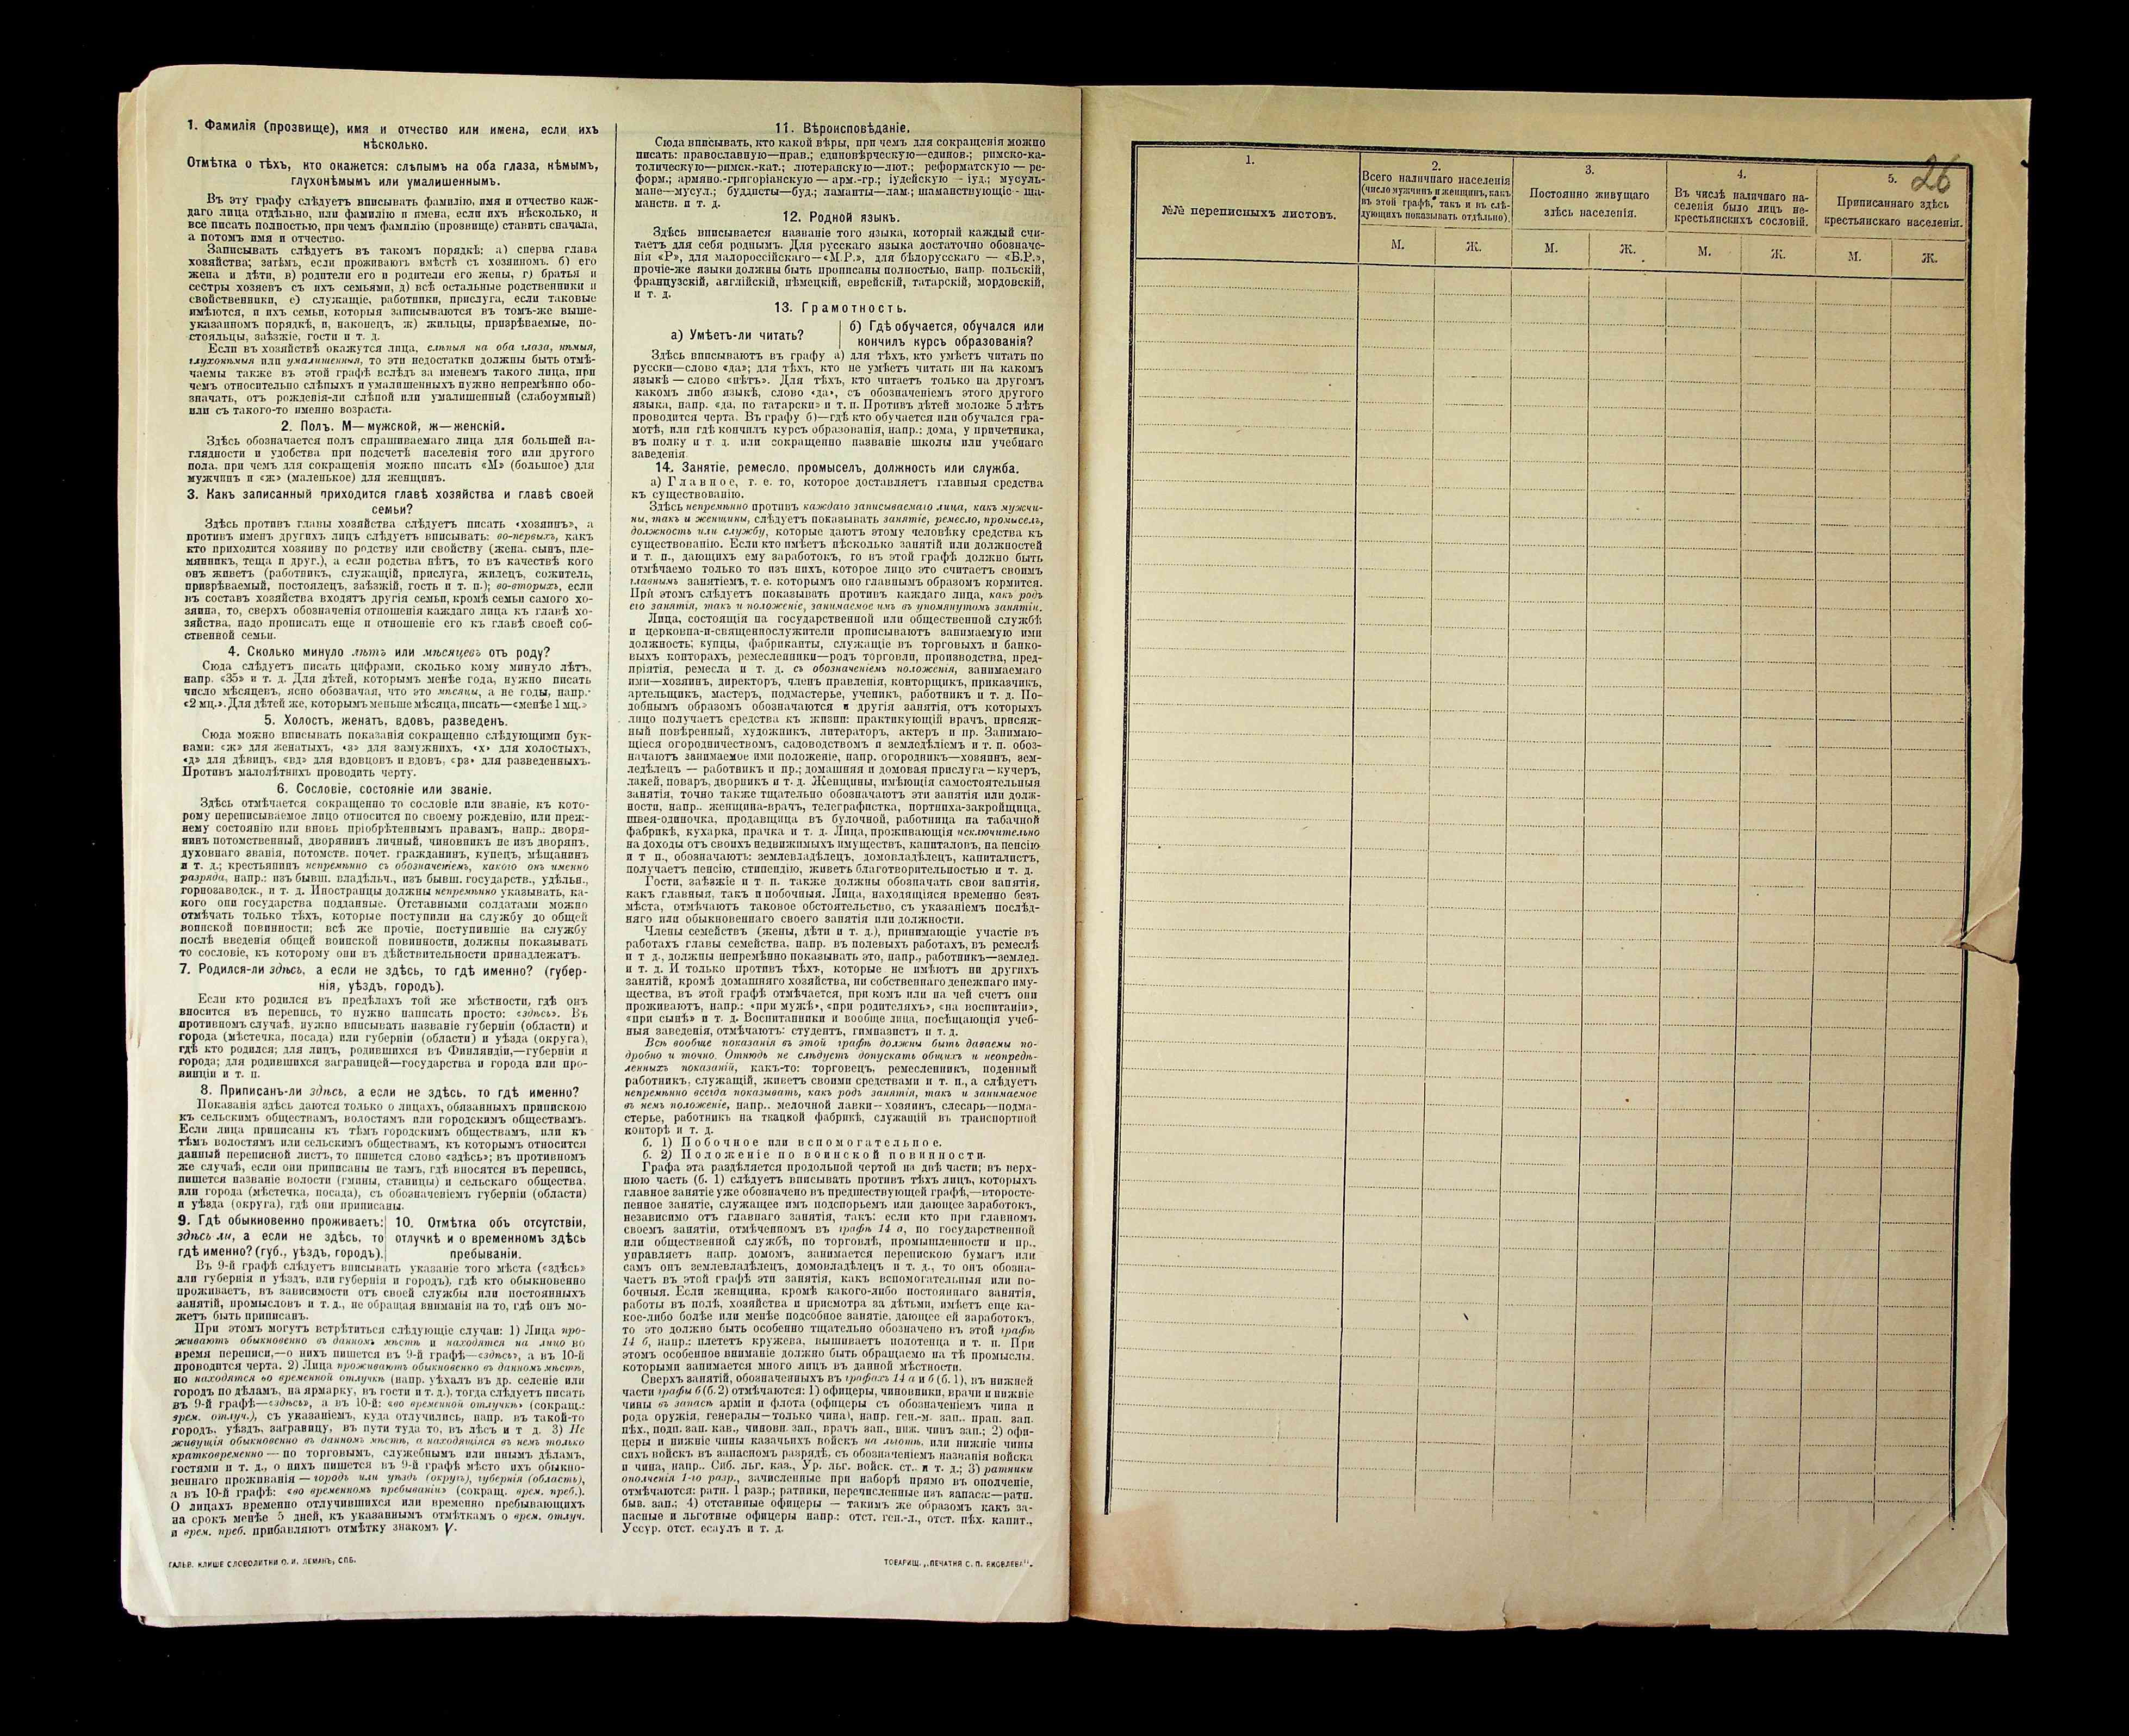 1. Фамилія (прозвище), имя и отчество или имена, если ихъ
нѣсколько.
Отмѣтка о тѣхъ, кто окажется: слѣпымъ на оба глаза, нѣмымъ,
глухонѣмымъ или умалишеннымъ.
Въ эту графу слѣдуетъ вписывать фамилію, имя и отчество каж-
даго лица отдѣльно, или фамилію и имена, если ихъ нѣсколько, и
все писать полностью, при чемъ фамилію (прозвище) ставить сначала,
а потомъ имя и отчество.
Записывать слѣдуетъ въ такомъ порядкѣ: а) сперва глава
хозяйства; затѣмъ, если проживаютъ вмѣстѣ съ хозяиномъ. б) его
жена и дѣти, в) родители его и родители его жены, г) братья и
сестры хозяевъ съ ихъ семьями, д) всѣ остальные родственники и
свойственники, е) служащіе, работники, прислуга, если таковые
имѣются, и ихъ семьи, которыя записываются въ томъ-же выше-
указанномъ порядкѣ, и, наконецъ, ж) жильцы, призрѣваемые, по-
стояльцы, заѣзжіе, гости и т. д.
Если въ хозяйствѣ окажутся лица, слѣпыя на оба глаза, нѣмыя,
глухонѣмыя или умалишенныя, то эти недостатки должны быть отмѣ-
чаемы также въ этой графѣ вслѣдъ за именемъ такого лица, при
чемъ относительно слѣпыхъ и умалишенныхъ нужно непремѣнно обо-
значать, отъ рожденія-ли слѣпой или умалишенный (слабоумный)
или съ такого-то именно возраста.
2. Полъ. М—мужской, ж—женскій.
Здѣсь обозначается полъ спрашиваемаго лица для большей на-
глядности и удобства при подсчетѣ населенія того или другого
пола, при чемъ для сокращенія можно писать «М» (большое) для
мужчинъ и «ж» (маленькое) для женщинъ.
3. Какъ записанный приходится главѣ хозяйства и главѣ своей
семьи?
Здѣсь противъ главы хозяйства слѣдуетъ писать «хозяинъ», а
противъ именъ другихъ лицъ слѣдуетъ вписывать: во-первыхъ, какъ
кто приходится хозяину по родству или свойству (жена. сынъ, пле-
мянникъ, теща и друг.), а если родства нѣтъ, то въ качествѣ кого
онъ живетъ (работникъ, служащій, прислуга, жилецъ, сожитель,
призрѣваемый, постоялецъ, заѣзжій, гость и т. п.); во-вторыхъ, если
въ составъ хозяйства входятъ другія семьи, кромѣ семьи самого хо-
зяина, то, сверхъ обозначенія отношенія каждаго лица къ главѣ хо-
зяйства, надо прописать еще и отношеніе его къ главѣ своей соб-
ственной семьи.
4. Сколько минуло лѣтъ или мѣсяцевъ отъ роду?
Сюда слѣдуетъ писать цифрами, сколько кому минуло лѣтъ,
напр. «35» и т. д. Для дѣтей, которымъ менѣе года, нужно писать
число мѣсяцевъ, ясно обозначая, что это мѣсяцы, а не годы, напр.
«2 мц.». Для дѣтей же, которымъ меньше мѣсяца, писать—«менѣе 1 мц.»
5. Холостъ, женатъ, вдовъ, разведенъ.
Сюда можно вписывать показанія сокращенно слѣдующими бук-
вами: «ж» для женатыхъ, «з» для замужнихъ, «х» для холостыхъ,
«д» для дѣвицъ, «вд» для вдовцовъ и вдовъ, «рз» для разведенныхъ.
Противъ малолѣтнихъ проводить черту.
6. Сословіе, состояніе или званіе.
Здѣсь отмѣчается сокращенно то сословіе или званіе, къ кото-
рому переписываемое лицо относится по своему рожденію, или преж-
нему состоянію или вновь пріобрѣтеннымъ правамъ, напр.: дворя-
нинъ потомственный, дворянинъ личный, чиновникъ не изъ дворянъ,
духовнаго званія, потомств. почет. гражданинъ, купецъ, мѣщанинъ
и т. д.; крестьянинъ непремѣнно съ обозначеніемъ, какого онъ именно
разряда, напр.: изъ бывш. владѣльч., изъ бывш. государств., удѣльн.,
горнозаводск., и т. д. Иностранцы должны непремѣнно указывать, ка-
кого они государства подданные. Отставными солдатами можно
отмѣчать только тѣхъ, которые поступили на службу до общей
воинской повинности; всѣ же прочіе, поступившіе на службу
послѣ введенія общей воинской повинности, должны показывать
то сословіе, къ которому они въ дѣйствительности принадлежатъ.
7. Родился-ли здѣсь, а если не здѣсь, то гдѣ именно? (губер-
нія, уѣздъ, городъ).
Если кто родился въ предѣлахъ той же мѣстности, гдѣ онъ
вносится въ перепись, то нужно написать просто: «здѣсь». Въ
противномъ случаѣ, нужно вписывать названіе губерніи (области) и
города (мѣстечка, посада) или губерніи (области) и уѣзда (округа),
гдѣ кто родился; для лицъ, родившихся въ Финляндіи,—губерніи и
города; для родившихся заграницей—государства и города или про-
винціи и т. п.
8. Приписанъ-ли здѣсь, а если не здѣсь, то гдѣ именно?
Показанія здѣсь даются только о лицахъ, обязанныхъ припискою
къ сельскимъ обществамъ, волостямъ или городскимъ обществамъ.
Если лица приписаны къ тѣмъ городскимъ обществамъ, или къ
тѣмъ волостямъ или сельскимъ обществамъ, къ которымъ относится
данный переписной листъ, то пишется слово «здѣсь»; въ противномъ
же случаѣ, если они приписаны не тамъ, гдѣ вносятся въ перепись,
пишется названіе волости (гмины, станицы) и сельскаго общества,
или города (мѣстечка, посада), съ обозначеніемъ губерніи (области)
и уѣзда (округа), гдѣ они приписаны.
9. Гдѣ обыкновенно проживаетъ:
здѣсь ли, а если не здѣсь, то
гдѣ именно? (губ., уѣздъ, городъ).
10. Отмѣтка объ отсутствіи,
отлучкѣ и о временномъ здѣсь
пребываніи.
Въ 9-й графѣ слѣдуетъ вписывать указаніе того мѣста («здѣсь»
или губернія и уѣздъ, или губернія и городъ), гдѣ кто обыкновенно
проживаетъ, въ зависимости отъ своей службы или постоянныхъ
занятій, промысловъ и т. д., не обращая вниманія на то, гдѣ онъ мо-
жетъ быть приписанъ.
При этомъ могутъ встрѣтиться слѣдующіе случаи: 1) Лица про-
живаютъ обыкновенно въ данномъ мѣстѣ и находятся на лицо во
время переписи,—о нихъ пишется въ 9-й графѣ—«здѣсь», а въ 10-й
проводится черта. 2) Лица проживаютъ обыкновенно въ данномъ мѣстѣ,
но находятся во временной отлучкѣ (напр. уѣхалъ въ др. селеніе или
городъ по дѣламъ, на ярмарку, въ гости и т. д.), тогда слѣдуетъ писать
въ 9-й графѣ—«здѣсь», а въ 10-й: «во временной отлучкѣ» (сокращ.:
врем. отлуч.), съ указаніемъ, куда отлучились, напр. въ такой-то
городъ, уѣздъ, заграницу, въ пути туда то, въ лѣсъ и т д. 3) Не
живущія обыкновенно въ данномъ мѣстѣ, а находящіяся въ немъ только
кратковременно — по торговымъ, служебнымъ или инымъ дѣламъ,
гостями и т. д., о нихъ пишется въ 9-й графѣ мѣсто ихъ обыкно-
веннаго проживанія — городъ или уѣздъ (округъ), губернія (область),
а въ 10-й графѣ: «во временномъ пребываніи» (сокращ. врем. преб.).
О лицахъ временно отлучившихся или временно пребывающихъ
на срокъ менѣе 5 дней, къ указаннымъ отмѣткамъ о врем. отлуч.
и врем. преб. прибавляютъ отмѣтку знакомъ V.
ГАЛЬВ. КЛИШЕ СЛОВОЛИТНИ О. И. ЛЕМАНЪ, СПБ.
11. Вѣроисповѣданіе.
Сюда вписывать, кто какой вѣры, при чемъ для сокращенія можно
писать: православную—прав.; единовѣрческую—единов.; римско-ка-
толическую—римск.-кат.; лютеранскую—лют.; реформатскую — ре-
форм.; армяно.-григоріанскую — арм.-гр.; іудейскую — іуд.; мусуль-
мане—мусул.; буддисты—буд.; ламаиты—лам.; шаманствующіе - ша-
манств. и т. д.
12. Родной языкъ.
Здѣсь вписывается названіе того языка, который каждый счи-
таетъ для себя роднымъ. Для русскаго языка достаточно обозначе-
нія «Р», для малороссійскаго—«М.Р.», для бѣлорусскаго — «Б.Р.»,
прочіе-же языки должны быть прописаны полностью, напр. польскій,
французскій, англійскій, нѣмецкій, еврейскій, татарскій, мордовскій,
и т. д.
13. Грамотность.
а) Умѣетъ-ли читать?
б) Гдѣ обучается, обучался или
кончилъ курсъ образованія?
Здѣсь вписываютъ въ графу а) для тѣхъ, кто умѣетъ читать по
русски—слово «да»; для тѣхъ, кто не умѣетъ читать ни на какомъ
языкѣ — слово «нѣтъ». Для тѣхъ, кто читаетъ только на другомъ
какомъ либо языкѣ, слово «да», съ обозначеніемъ этого другого
языка, напр. «да, по татарски» и т. п. Противъ дѣтей моложе 5 лѣтъ
проводится черта. Въ графу б)—гдѣ кто обучается или обучался гра-
мотѣ, или гдѣ кончилъ курсъ образованія, напр.: дома, у причетника,
въ полку и т. д. или сокращенно названіе школы или учебнаго
заведенія.
14. Занятіе, ремесло, промыселъ, должность или служба.
а) Главное, т. е. то, которое доставляетъ главныя средства
къ существованію.
Здѣсь непремѣнно противъ каждаго записываемаго лица, какъ мужчи-
ны, такъ и женщины, слѣдуетъ показывать занятіе, ремесло, промыселъ,
должность или службу, которые даютъ этому человѣку средства къ
существованію. Если кто имѣетъ нѣсколько занятій или должностей
и т. п., дающихъ ему заработокъ, то въ этой графѣ должно быть
отмѣчаемо только то изъ нихъ, которое лицо это считаетъ своимъ
главнымъ занятіемъ, т. е. которымъ оно главнымъ образомъ кормится.
При этомъ слѣдуетъ показывать противъ каждаго лица, какъ родъ
его занятія, такъ и положеніе, занимаемое имъ въ упомянутомъ занятіи.
Лица, состоящія на государственной или общественной службѣ
и церковна-и-священнослужители прописываютъ занимаемую ими
должность; купцы, фабриканты, служащіе въ торговыхъ и банко-
выхъ конторахъ, ремесленники—родъ торговли, производства, пред-
пріятія, ремесла и т. д. съ обозначеніемъ положенія, занимаемаго
ими—хозяинъ, директоръ, членъ правленія, конторщикъ, приказчикъ,
артельщикъ, мастеръ, подмастерье, ученикъ, работникъ и т. д. По-
добнымъ образомъ обозначаются и другія занятія, отъ которыхъ
лицо получаетъ средства къ жизни: практикующій врачъ, присяж-
ный повѣренный, художникъ, литераторъ, актеръ и пр. Занимаю-
щіеся огородничествомъ, садоводствомъ и земледѣліемъ и т. п. обоз-
начаютъ занимаемое ими положеніе, напр. огородникъ—хозяинъ, зем-
ледѣлецъ — работникъ и пр.; домашняя и домовая прислуга—кучеръ,
лакей, поваръ, дворникъ и т. д. Женщины, имѣющія самостоятельныя
занятія, точно также тщательно обозначаютъ эти занятія или долж-
ности, напр. женщина-врачъ, телеграфистка, портниха-закройщица,
швея-одиночка, продавщица въ булочной, работница на табачной
фабрикѣ, кухарка, прачка и т. д. Лица, проживающія исключительно
на доходы отъ своихъ недвижимыхъ имуществъ, капиталовъ, на пенсію
и т п., обозначаютъ: землевладѣлецъ, домовладѣлецъ, капиталистъ,
получаетъ пенсію, стипендію, живетъ благотворительностью и т. д.
Гости, заѣзжіе и т. п. также должны обозначать свои занятія,
какъ главныя, такъ и побочныя. Лица, находящіяся временно безъ
мѣста, отмѣчаютъ таковое обстоятельство, съ указаніемъ послѣд-
няго или обыкновеннаго своего занятія или должности.
Члены семействъ (жены, дѣти и т. д.), принимающіе участіе въ
работахъ главы семейства, напр. въ полевыхъ работахъ, въ ремеслѣ
и т д., должны непремѣнно показывать это, напр., работникъ—землед.
и т. д. И только противъ тѣхъ, которые не имѣютъ ни другихъ
занятій, кромѣ домашняго хозяйства, ни собственнаго денежнаго иму-
щества, въ этой графѣ отмѣчается, при комъ или на чей счетъ они
проживаютъ, напр.: «при мужѣ», «при родителяхъ», «на воспитаніи»,
«при сынѣ» и т. д. Воспитанники и вообще лица, посѣщающія учеб-
ныя заведенія, отмѣчаютъ: студентъ, гимназистъ и т. д.
Всѣ вообще показанія въ этой графѣ должны быть даваемы по-
дробно и точно. Отнюдь не слѣдуетъ допускать общихъ и неопредѣ-
ленныхъ показаній, какъ-то: торговецъ, ремесленникъ, поденный
работникъ, служащій, живетъ своими средствами и т. п., а слѣдуетъ
непремѣнно всегда показывать, какъ родъ занятія, такъ и занимаемое
въ немъ положеніе, напр.. мелочной лавки—хозяинъ, слесарь—подма-
стерье, работникъ на ткацкой фабрикѣ, служащій въ транспортной
конторѣ и т. д.
б. 1) Побочное или вспомогательное.
б. 2) Положеніе по воинской повинности.
Графа эта раздѣляется продольной чертой на двѣ части; въ верх-
нюю часть (б. 1) слѣдуетъ вписывать противъ тѣхъ лицъ, которыхъ
главное занятіе уже обозначено въ предшествующей графѣ,—второсте-
пенное занятіе, служащее имъ подспорьемъ или дающее заработокъ,
независимо отъ главнаго занятія, такъ: если кто при главномъ
своемъ занятіи, отмѣченномъ въ графѣ 14 а, по государственной
или общественной службѣ, по торговлѣ, промышленности и пр.,
управляетъ напр. домомъ, занимается перепискою бумагъ или
самъ онъ землевладѣлецъ, домовладѣлецъ и т. д., то онъ обозна-
чаетъ въ этой графѣ эти занятія, какъ вспомогательныя или по-
бочныя. Если женщина, кромѣ какого-либо постояннаго занятія,
работы въ полѣ, хозяйства и присмотра за дѣтьми, имѣетъ еще ка-
кое-либо болѣе или менѣе подсобное занятіе, дающее ей заработокъ,
то это должно быть особенно тщательно обозначено въ этой графѣ
14 б, напр.: плететъ кружева, вышиваетъ полотенца и т. п. При
этомъ особенное вниманіе должно быть обращаемо на тѣ промыслы.
которыми занимается много лицъ въ данной мѣстности.
Сверхъ занятій, обозначенныхъ въ графахъ 14 а и б (б. 1), въ нижней
части графы б (б. 2) отмѣчаются: 1) офицеры, чиновники, врачи и нижніе
чины въ запасѣ арміи и флота (офицеры съ обозначеніемъ чина и
рода оружія, генералы—только чина), напр. ген.-м. зап.. прап. зап.
пѣх., подп. зап. кав., чиновн. зап., врачъ зап., ниж. чинъ зап.; 2) офи-
церы и нижніе чины казачьихъ войскъ на льготѣ, или нижніе чины
сихъ войскъ въ запасномъ разрядѣ, съ обозначеніемъ названія войска
и чина, напр.. Сиб. льг. каз., Ур. льг. войск. ст.. и т. д.; 3) ратники
ополченія 1-го разр., зачисленные при наборѣ прямо въ ополченіе,
отмѣчаются: ратн. 1 разр.; ратники, перечисленные изъ запаса:—ратн.
быв. зап.; 4) отставные офицеры — такимъ же образомъ какъ за-
пасные и льготные офицеры напр.: отст. ген.-л., отст. пѣх. капит.,
Уссур. отст. есаулъ и т. д.
ТОВАРИЩ. „ПЕЧАТНЯ С. П. ЯКОВЛЕВА“.
26
1.
№№ переписныхъ листовъ.
2.
Всего наличнаго населенія
(число мужчинъ и женщинъ, какъ
въ этой графѣ, такъ и въ слѣ-
дующихъ показывать отдѣльно).
3.
Постоянно живущаго
здѣсь населенія.
4.
Въ числѣ наличнаго на-
селенія было лицъ не-
крестьянскихъ сословій.
5.
Приписаннаго здѣсь
крестьянскаго населенія.
М. Ж. М. Ж. М. Ж. М. Ж.